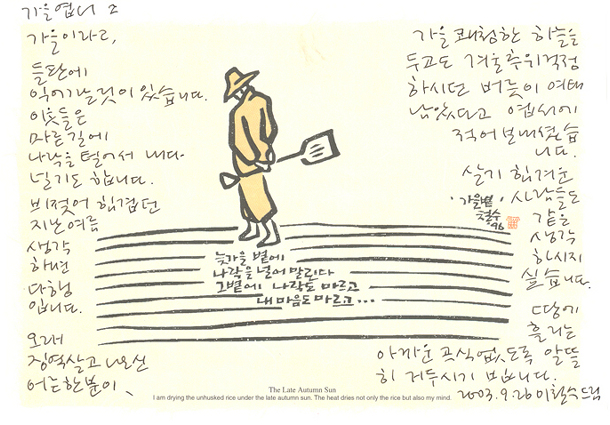 가을엽서 2
가을이라고,
들판에
익어가는 것이 있습니다.
이웃들은
마른 길에
나락을 털어서 내다
널기도 합니다.
비젖어 힘겹던
지난 여름
생각
하면
다행
입니다.
오래
징역살고 나오신
어느 한분이,
가을 쾌청한 하늘을
두고도 겨울추위걱정
하시던 버릇이 여태
남았다고 엽서에
적어보내셨습
니다.
살기 힘겨운
사람들도
같은
생각
하시지
싶습니다.
땅에
흘리는
아까운 곡식 없도록 알뜰
히 거두시기 빕니다.
2003.9.26 이철수 드림
'가을볕'
철수
96
늦가을 볕에
나락을 널어 말린다
그볕에 나락도 마르고
내 마음도 마르고...
The Late Autumn Sun
I am drying the unhusked rice under the late autumn sun. The heat dries not only the rice but also my mind.